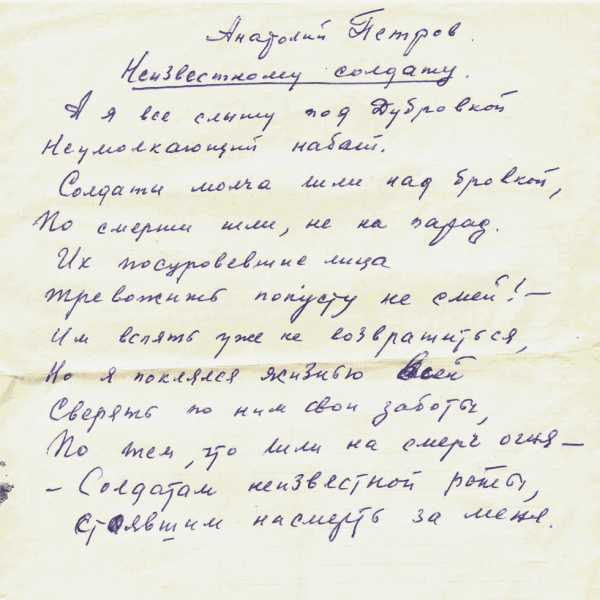 Анатолий Петров.
Неизвестному солдату.
А я все слышу под Дубровкой
Неумолкающий набат.
Солдаты молча шли над бровкой,
По смерти шли, не на парад.
Их посуровевшие лица
Тревожить попусту не смей! –
Им вспять уже не возвратиться,
Но я поклялся жизнью всей
Сверять по ним свои заботы,
По тем, что шли на смерч огня –
– Солдатам неизвестной роты,
стоявшим насмерть за меня.